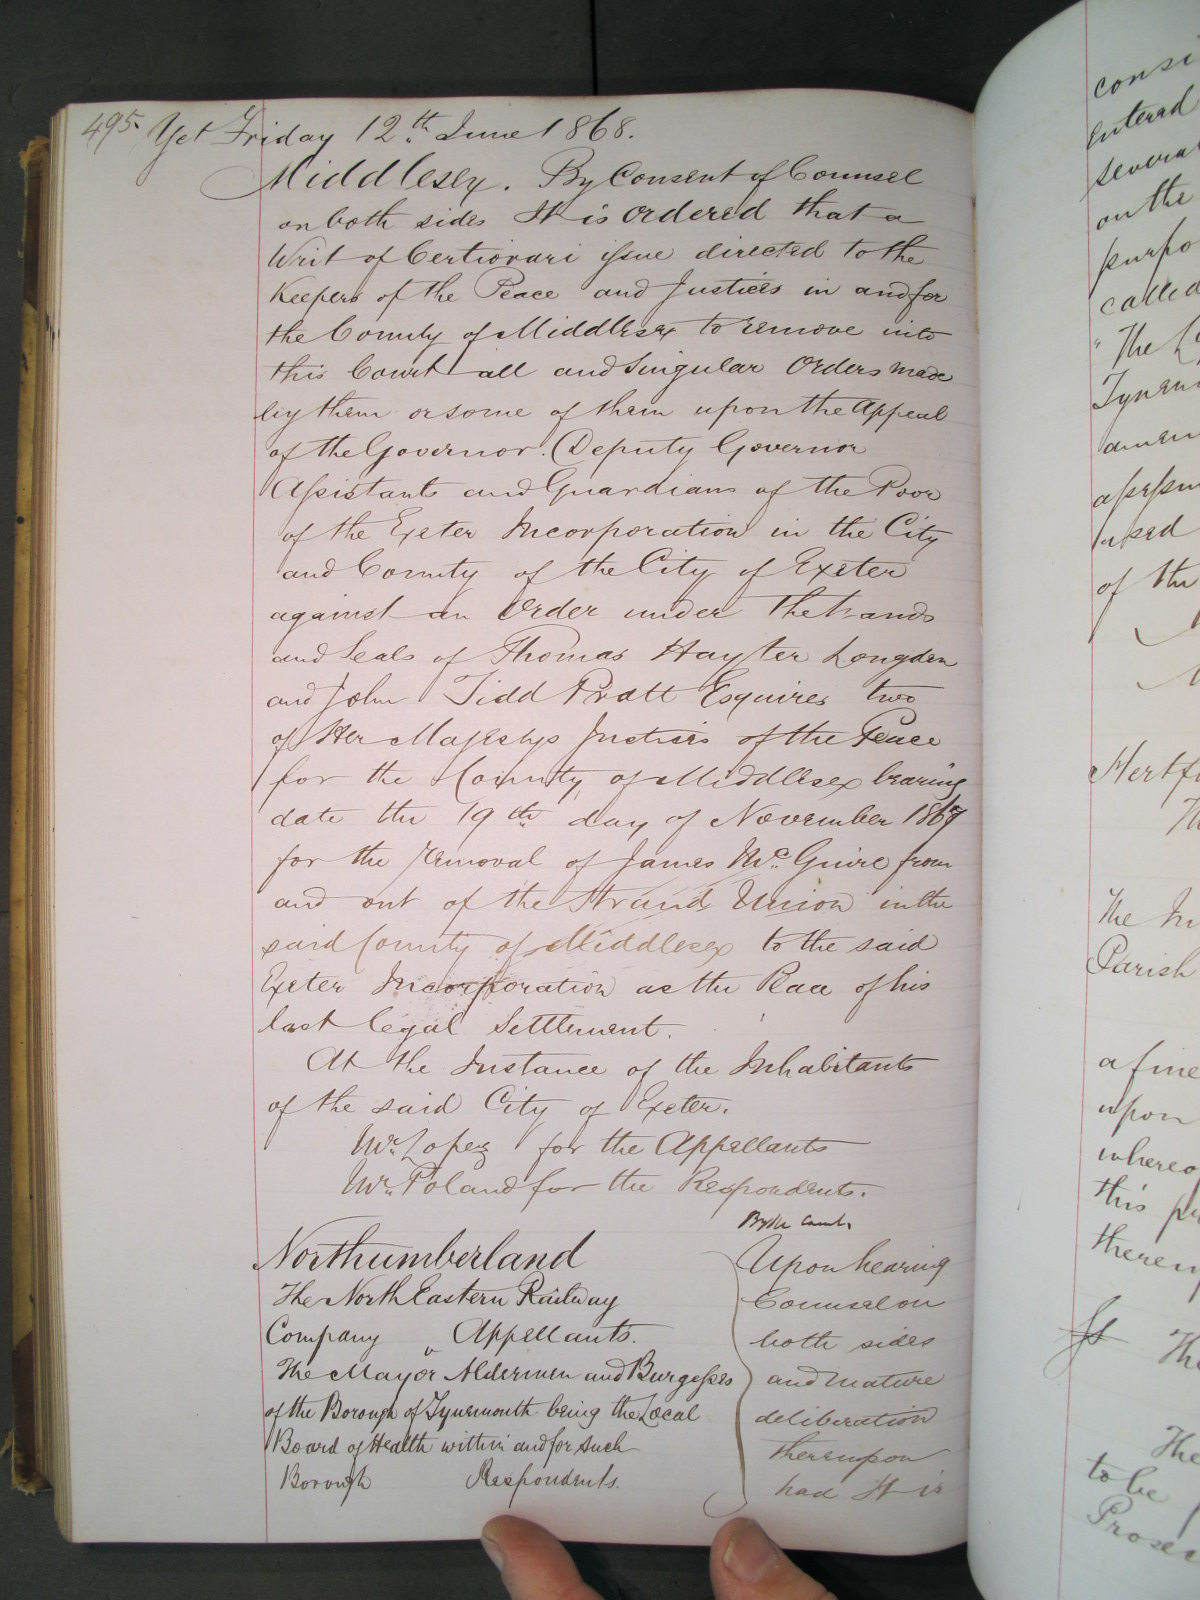 495. Yet Friday 12th June 1868.
Middlesex. By Consent of Counsel
on both sides It is ordered that a
Writ of Certiorari issue directed to the
Keepers of the Peace and Justices in and for
the County of Middlesex to remove into
this Court all and Singular Orders made
by them or some of them upon the Appeal
of the Governor. Deputy Governor
Assistants and Guardians of the Poor
of the Exeter Incorporation in the City
and County of the City of Exeter
against an Order under the hands
and Seals of Thomas Hayter Longden
and John Tidd Pratt Esquires two
of Her Majestys Justices of the Peace
for the County of Middlesex bearing
date the 19th day of November 1867
for the removal of James McGuire from
and out of the Strand Union in the
said County of Middlesex to the said
Exeter Incorporation as the Place of his
last legal Settlement.
At the Instance of the Inhabitants
of the said City of Exeter.
Mr. Lopez for the Appellants
Mr. Poland for the Respondents.
By the Court
Northumberland
The North Eastern Railway
Company Appellants.
v
The Mayor Aldermen and Burgesses
of the Borough of Tynemouth being the Local
Board of Health within and for such
Borough Respondents.
Upon hearing
Counsel on
both sides
and mature
deliberation
thereupon
had It is
consi
Entered
several
on the
purpo
called
"The
Tynem
amen
assessm
of the
Hertf
The In
Parish
a fine
upon
whereo
this
thereu
The
The
to be
Prosec